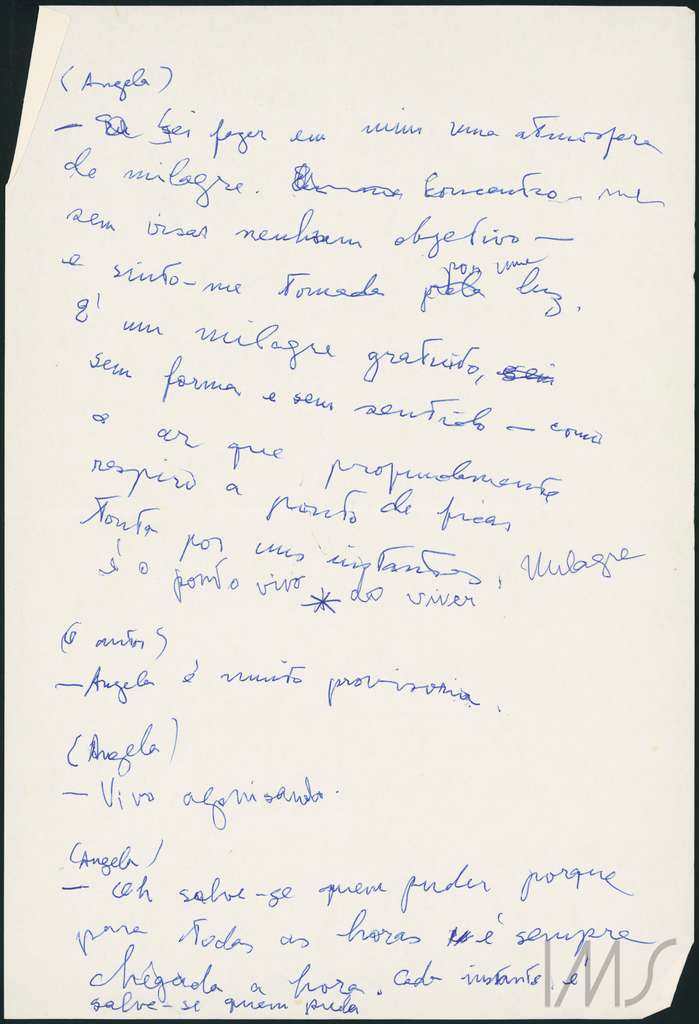 (Angela)
— Sei fazer em mim uma atmosfera
de milagre. Concentro-me
sem visar nenhum objetivo —
e sinto-me tomada por uma luz.
É um milagre gratuito,
sem forma e sem sentido — como
o ar que profundamente
respiro a ponto de ficar
tonta por uns instantes. Milagre
é o ponto vivo do viver
(O autor)
— Angela é muito provisoria.
(Angela)
— Vivo agonisando.
(Angela)
— Oh salve-se quem puder porque
para todas as horas é sempre
chegada a hora. Cada instante é
salve-se quem puder
IMS